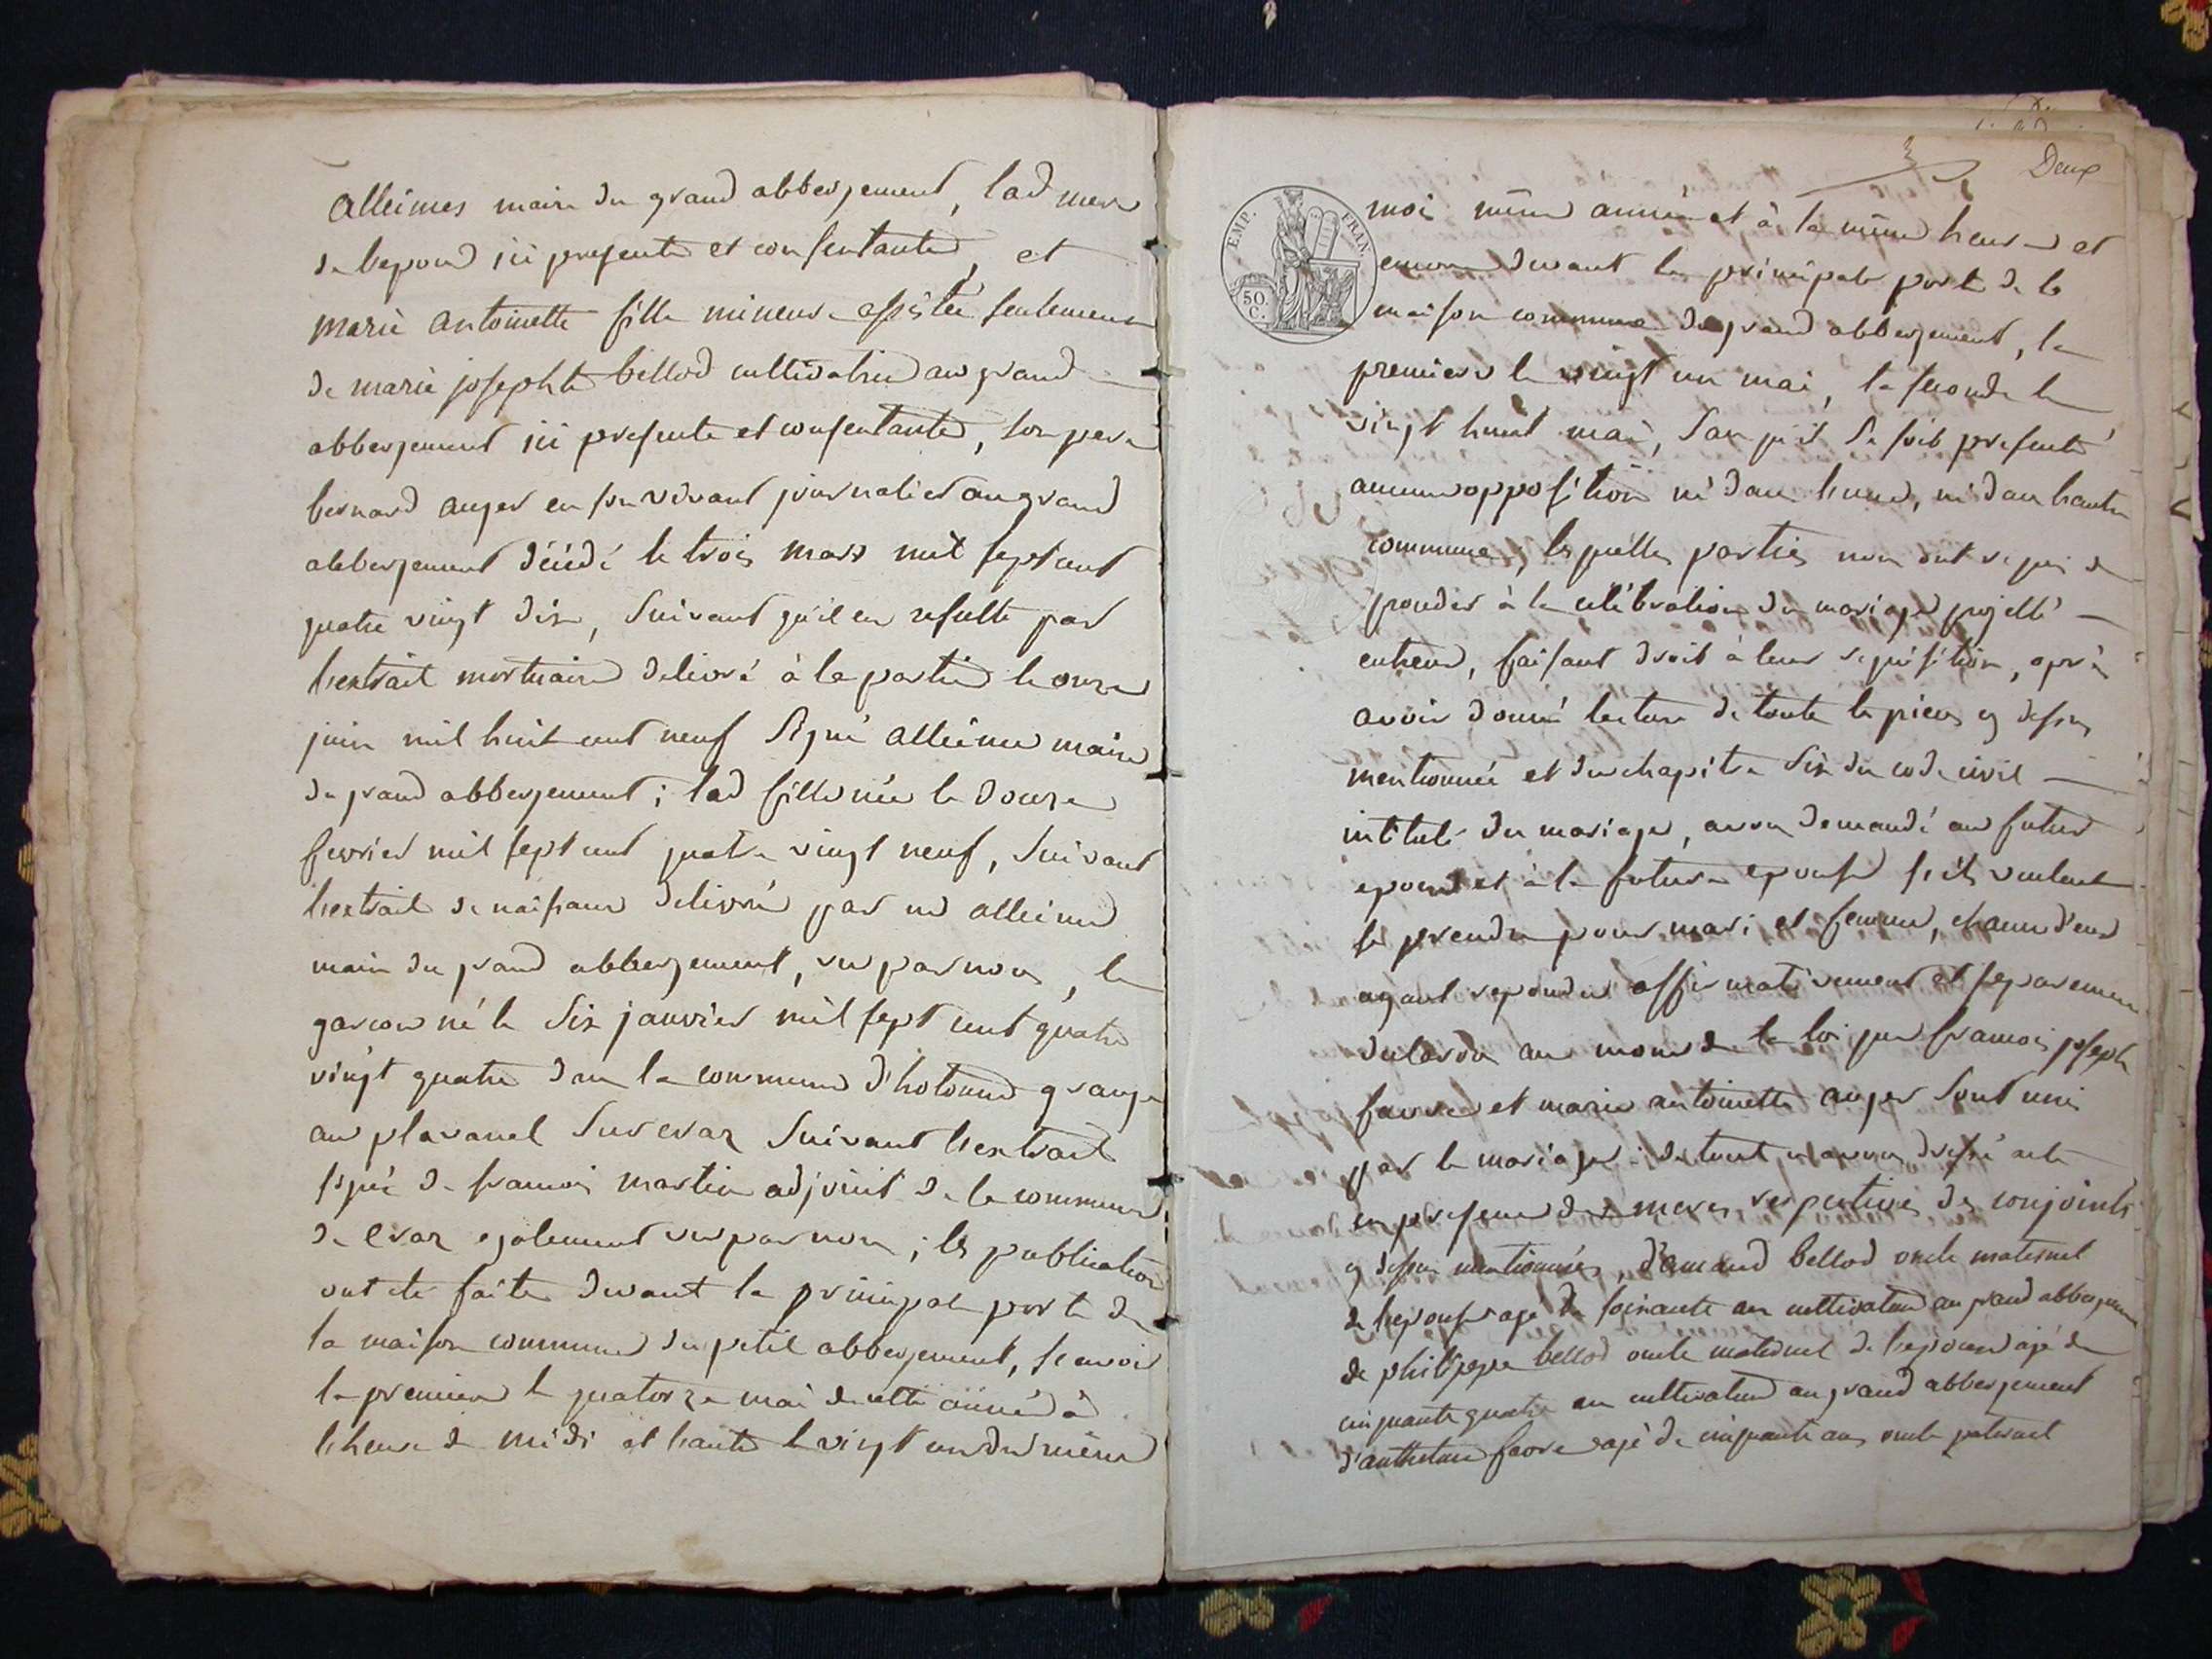 alleimes maire du grand abbergement, lad mere
de lepoux ici presente et consentante, et
marie antoinette fille mineure assistée seulement
de marie josephte bellod cultivatrice au grand
abbergement ici presente et consentante, son pere
bernard auger en son vivant journalier au grand
abbergement décédé le trois mars mil sept cent
quatre vingt dix, suivant qu'il en resulte par
lextrait mortuaire delivré à la partie le onze
juin mil huit cent neuf signé alleime maire
du grand abbergement ; lad fille née le douze
fevrier mil sept cent quatre vingt neuf, suivant
lextrait de naissance delivré par md alleime
maire du grand abbergement, vu par nous, le
garcon né le six janvier mil sept cent quatre
vingt quatre dans la commune d'hotonne grange
au plavanel sur evaz suivant lextrait
signé de francois martin adjoint de la commune
de evaz egalement vu par nous ; les publications
ont ete faite devant la principale porte de
la maison commune du petit abbergement, scavoir
la premiere le quatorze mai de cette année à
lheure de midi et lautre le vingt un du même
Deux
EMP. FRAN.
50. C.
moi même année et à la même heure et
encore devant la principale porte de la
maison commune du grand abbergement, la
premiere le vingt un mai, la seconde le
vingt huit mai, sans qu'il se soit presenté
aucune opposition ni dans lune, ni dans lautre
commune, lesquelles parties nous ont requis de
proceder à la célébration du mariage projetté
entreux, faisant droit à leur requisition, après
avoir donné lecture de toute les pieces cy dessus
mentionnée et du chapitre six du code civil
intitulé du mariage, avons demandé au futur
epoux et à la future epouse s'ils veulent
se prendre pour mari et femme, chacun d'eux
ayant repondu affirmativement et separement
declarons au nom de la loi que francois joseph
favre et marie antoinette auger sont unis
par le mariage : de tout ce avons dressé acte
en presence des meres respectives des conjoints
cy dessus mentionnées, d'amand bellod oncle maternel
de lepouse agé de soixante ans cultivateur au grand abbergement
de philippe bellod oncle maternel de lepoux agé de
cinquante quatre ans cultivateur au grand abbergement
d'anthelme favre agé de cinquante ans oncle paternel